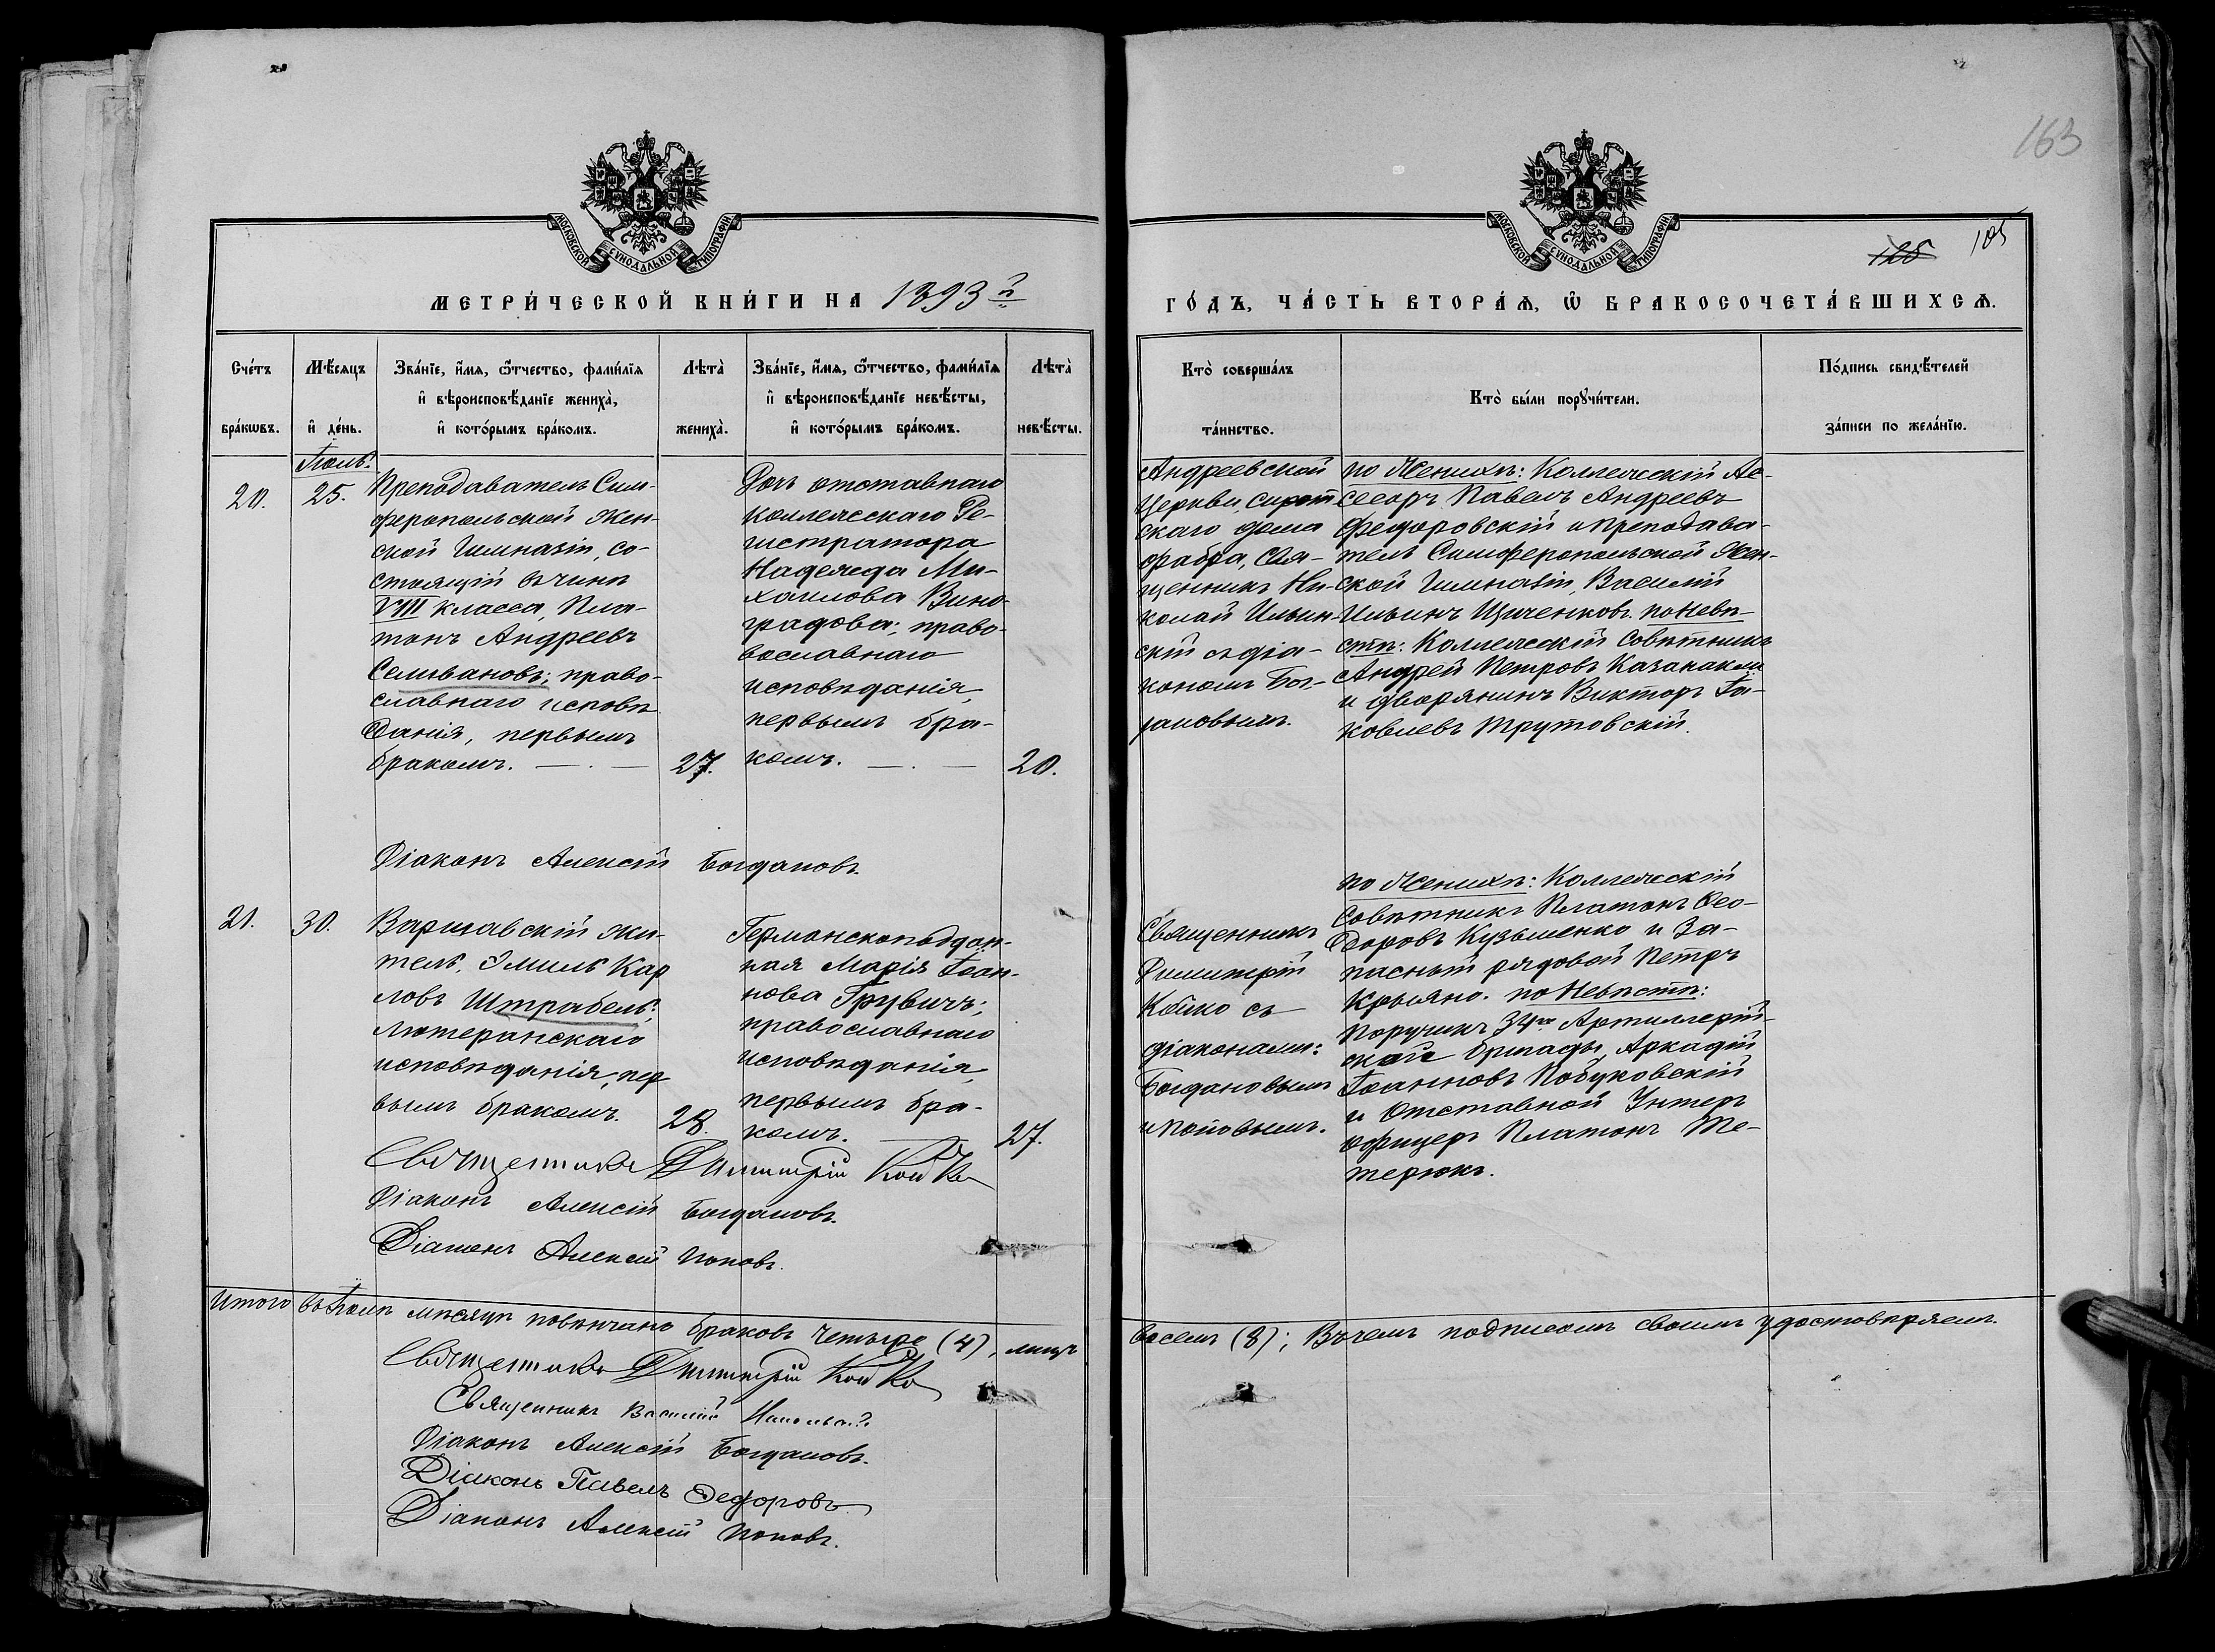 163
МОСКОВСКОЙ СѴНОДАЛЬНОЙ ТИПОГРАФІИ
МОСКОВСКОЙ СѴНОДАЛЬНОЙ ТИПОГРАФІИ
125 105
МЕТРИ́ЧЕСКОЙ КНИ́ГИ НА 1893й
ГО́ДЪ, ЧА́СТЬ ВТОРА́Ѧ, Ѿ БРАКОСОЧЕТА́ВШИХСѦ.
Сче́тъ
бра́кѡвъ.
Мѣ́сяцъ
и҆ де́нь.
Зва́нїе, и҆́мѧ, ѻ҆́тчество, фами́лїѧ
и҆ вѣроисповѣ́данїе жениха̀,
и҆ кото́рымъ бра́комъ.
Лѣта̀
жениха̀.
Зва́нїе, и҆́мѧ, ѻ҆́тчество, фами́лїѧ
и҆ вѣроисповѣ́данїе невѣ́сты,
и҆ кото́рымъ бра́комъ.
Лѣта̀
невѣ́сты.
Кто̀ соверша́лъ
та́инство.
Кто̀ бы́ли порꙋчи́тели.
По́дпись свидѣ́телей
за́писи по жела́нїю.
Іюль.
20.
25.
Преподаватель Сим-
феропольской Жен-
ской Гимназіи, со-
стоящій въ чинѣ
VIII класса, Пла-
тонъ Андреевъ
Селивановъ; право-
славнаго исповѣ
данія, первымъ
бракомъ.
27.
Дочь отставнаго
Коллежскаго Ре-
гистратора
Надежда Ми-
хаилова Вино-
градова; право-
вославнаго
исповѣданія,
первымъ бра-
комъ.
20.
Андреевской
Церкви, сирот
скаго дома
фабра, Свя-
щенникъ Ни-
колай Ильин-
скій съ діа-
кономъ Бог-
дановымъ.
по Женихѣ: Коллежскій Ас-
сесоръ Павелъ Андреевъ
Федоровскій и Преподава-
тель Симферопольской Жен-
ской Гимназіи, Василій
Ильинъ Ищенковъ. по Невѣ
стѣ: Коллежскій Совѣтникъ
Андрей Петровъ Казанакли
и дворянинъ Викторъ Іа-
ковлевъ Трутовскій.
Діаконъ Алексій Богдановъ.
21.
30.
Варшавскій жи-
тель, Эмиль Кар
ловъ Штрабель;
Лютеранскаго
исповѣданія, пер
вымъ бракомъ.
28.
Германскоподдан-
ная Марія Іоан-
нова Грувичъ;
православнаго
исповѣданія,
первымъ бра-
комъ.
27.
Священникъ
Димитрій
Койко съ
діаконами:
Богдановымъ
и Поповымъ.
по Женихѣ: Коллежскій
Совѣтникъ Платонъ Ѳео-
доровъ Кузьменко и За-
пасный рядовой Петръ
Крьяно. по Невѣстѣ:
Поручикъ 34й Артиллерій-
ской бригады, Аркадій
Іоанновъ Побуковскій
и Отставной Унтеръ
офицеръ Платонъ Те-
терюкъ.
Священникъ Димитрій Койко
Діаконъ Алексій Богдановъ.
Діаконъ Алексій Поповъ.
Итого въ Іюлѣ мѣсяцѣ повѣнчано браковъ четыре (4), лицъ
восемь (8); Въ чемъ подписомъ своимъ удостовѣряемъ.
Священникъ Димитрій Койко
Священникъ Василій
Діаконъ Алексій Богдановъ.
Діаконъ Павелъ Федоровъ
Діаконъ Алексій Поповъ.